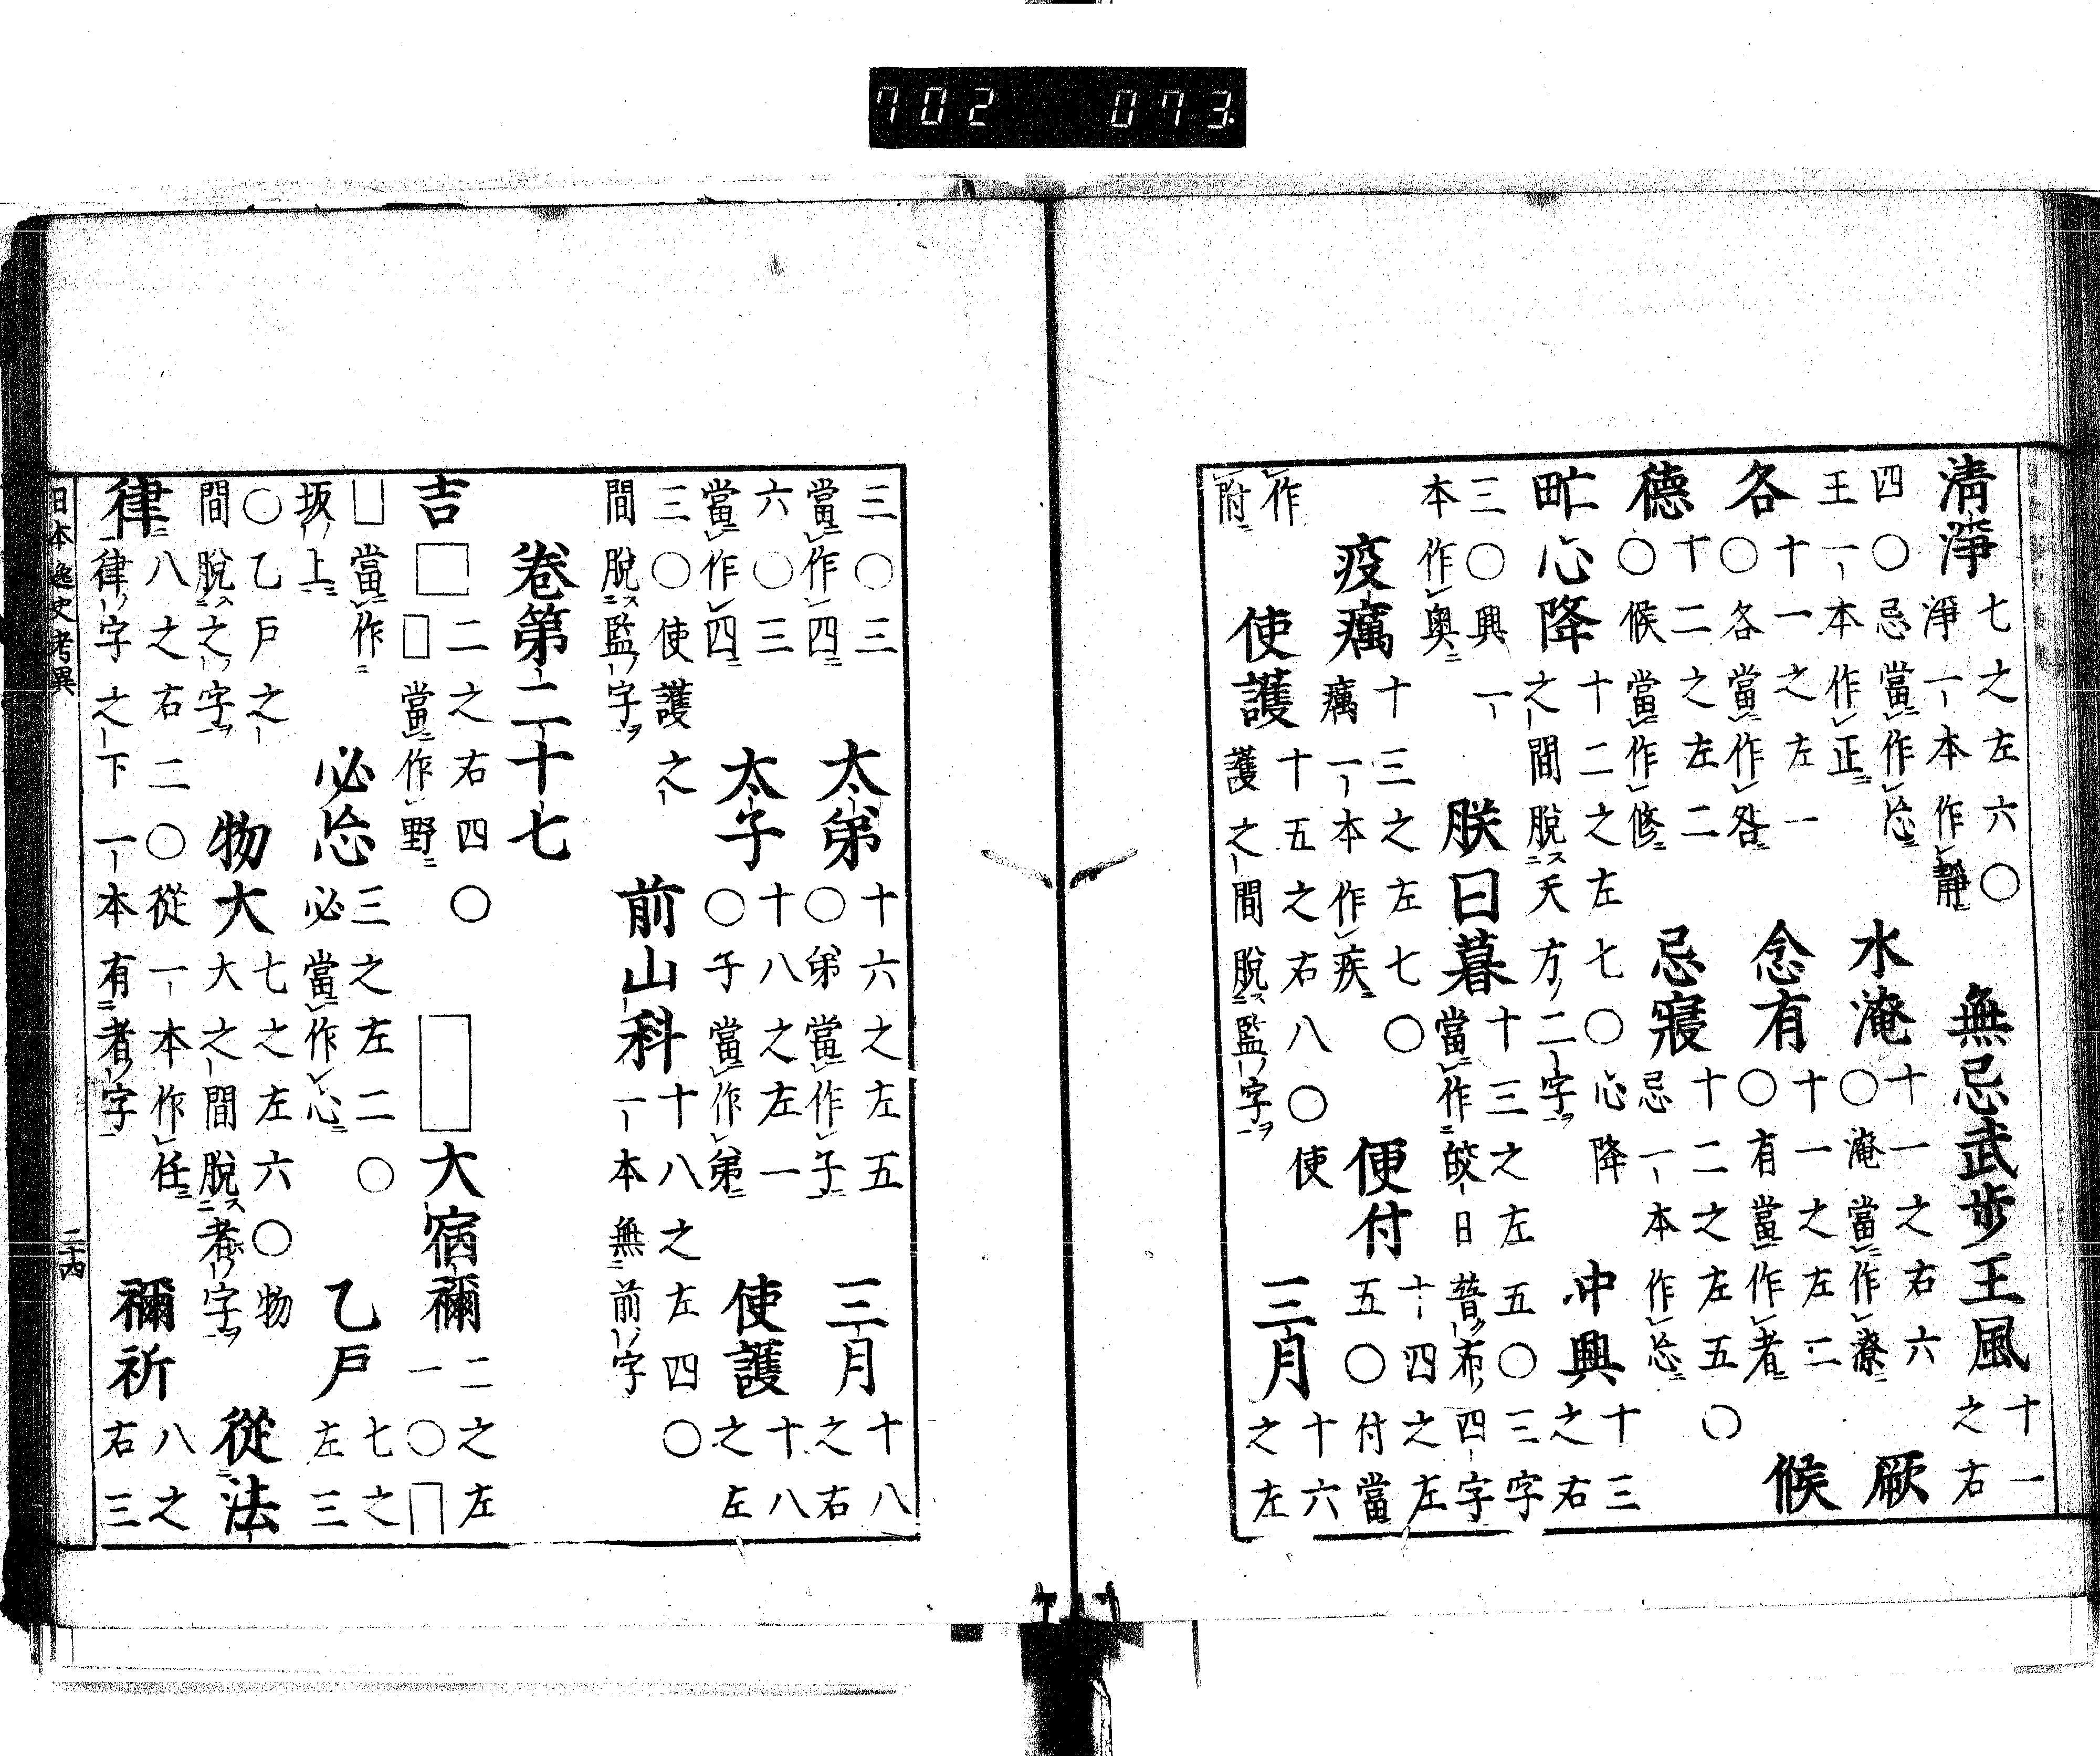 清淨 七之左六〇淨一本作靜 無忌武步王風 十一之右
四〇忌當作忩王一本作正 水淹 十一之右六〇淹當作潦 厥
各 十一之左一〇各當作咎 念有 十一之左二〇有當作者 候
德 十二之左二〇候當作修 忌寢 十二之左五〇忌一本作忩
甿心降 十二之左七〇心降之間脫天方二字 冲興 十三之右
三〇興一本作奧 朕曰暮 十三之左五〇三字當作皎日普布四字
疫癘 十三之左七〇癘一本作疾 便付 十四之左五〇付當
作附 使護 十五之右八〇使護之間脫監字 三月 十六之左
三〇三當作四 太弟 十六之左五〇弟當作子 三月 十八之右
六〇三當作四 太子 十八之左一〇子當作弟 使護 十八之左
三〇使護之間脫監字 前山科 十八之左四〇一本無前字
卷第二十七
吉□ 二之右四〇□當作野 □大宿禰 二之左一〇□
□當作坂上 必忩 三之左二〇必當作心 乙戶 七之左三
〇乙戶之間脫之字 物大 七之左六〇物大之間脫者字 從法
律 八之右二〇從一本作任律字之下一本有者字 禰祈 八之右三
日本逸史考異 二十四
702 073